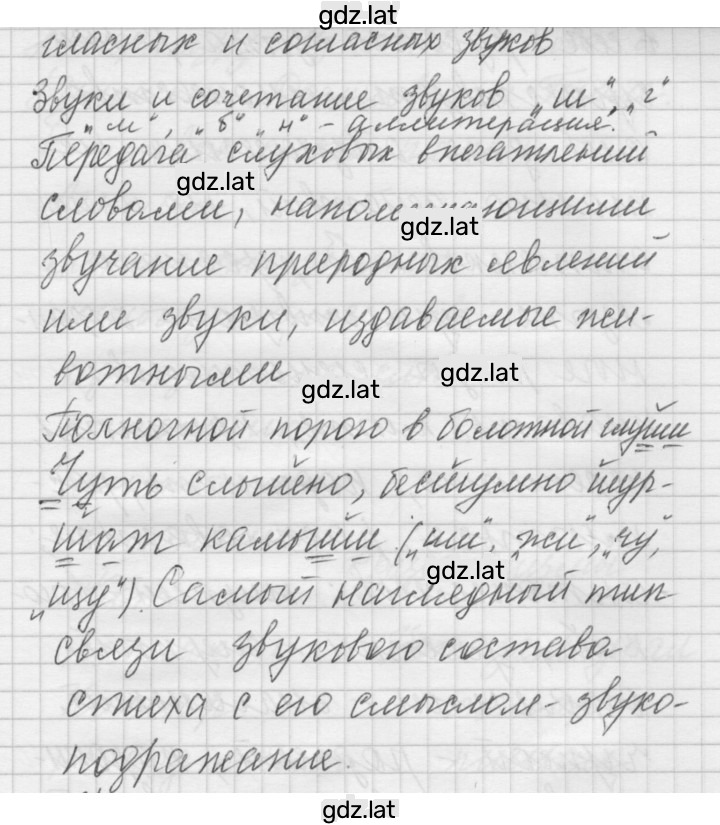 gdz.lat
гласных и согласных звуков
Звуки и сочетание звуков „ш“, „г“
„м“, „б“ „н“ – аллитерация.
Передача слуховых впечатлений
gdz.lat
словами, напоминающими
gdz.lat
звучание природных явлений
или звуки, издаваемые жи-
вотными
gdz.lat
gdz.lat
Полночной порою в болотной глуши
Чуть слышно, бесшумно шур-
шат камыши („ши“, „жи“, „чу“,
gdz.lat
„щу“). Самый наглядный тип
связи звукового состава
стиха с его смыслом – звуко-
подражание.
gdz.lat